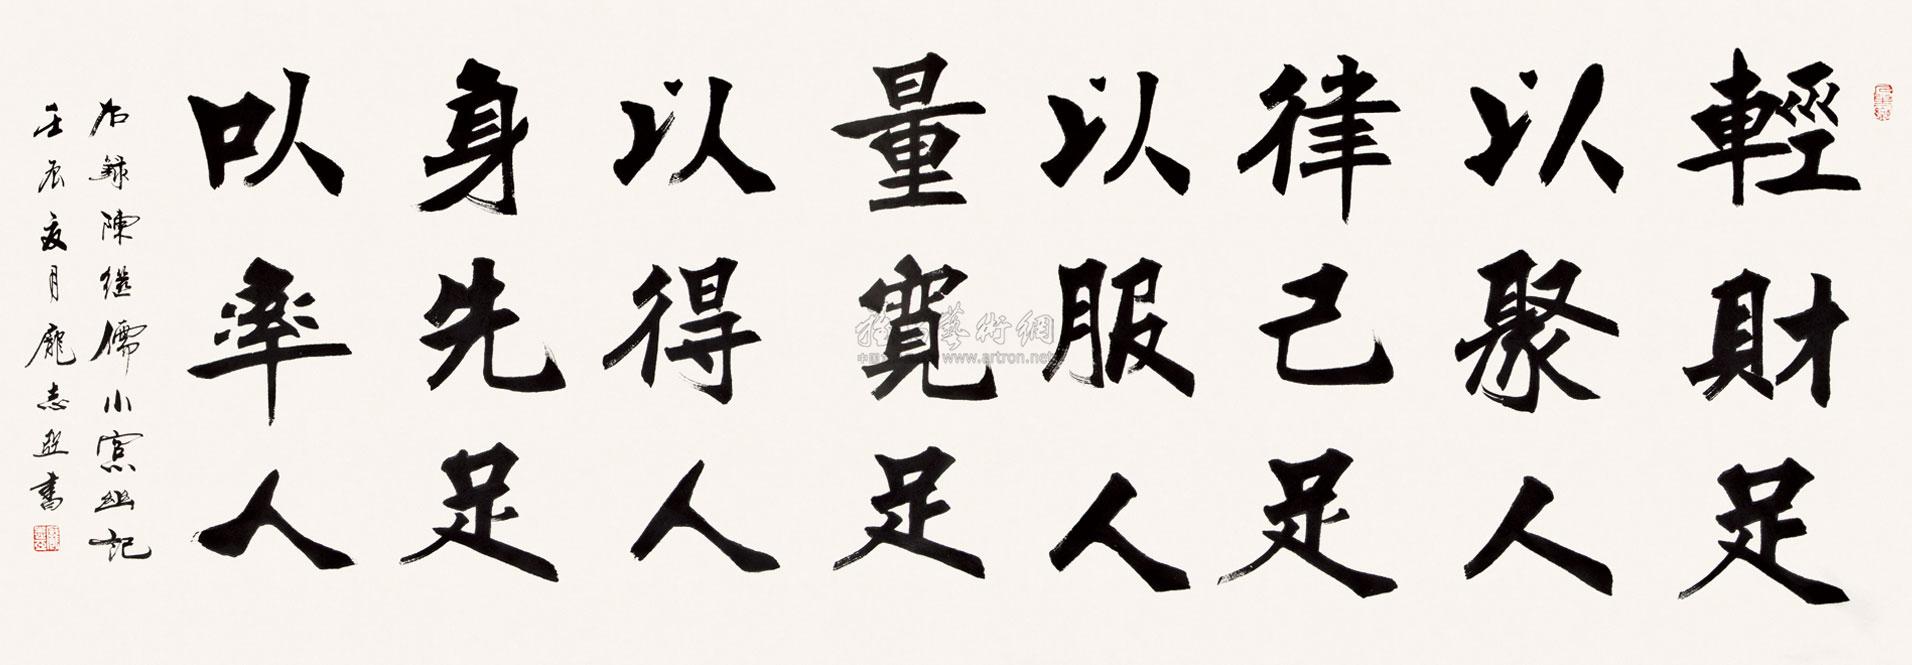 輕財足
以聚人
律己足
以服人
量寬足
以得人
身先足
以率人
右錄陳繼儒小窗幽記
壬辰夏月龐志英書
藝術網
www.artron.net